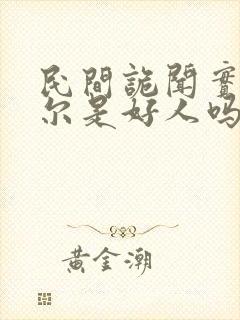 民間詭聞實
尔是好人吗
黄金潮